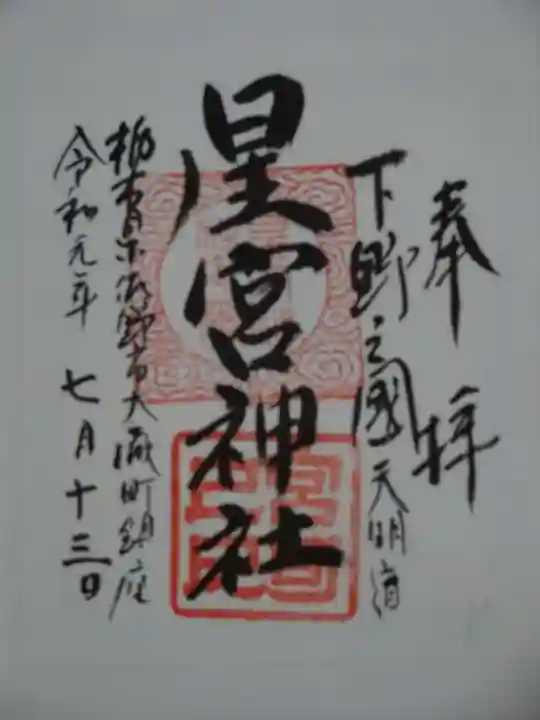 奉拝
下野之國天明道
星宮神社
栃木県佐野市大蔵町鎮座
令和元年七月十三日